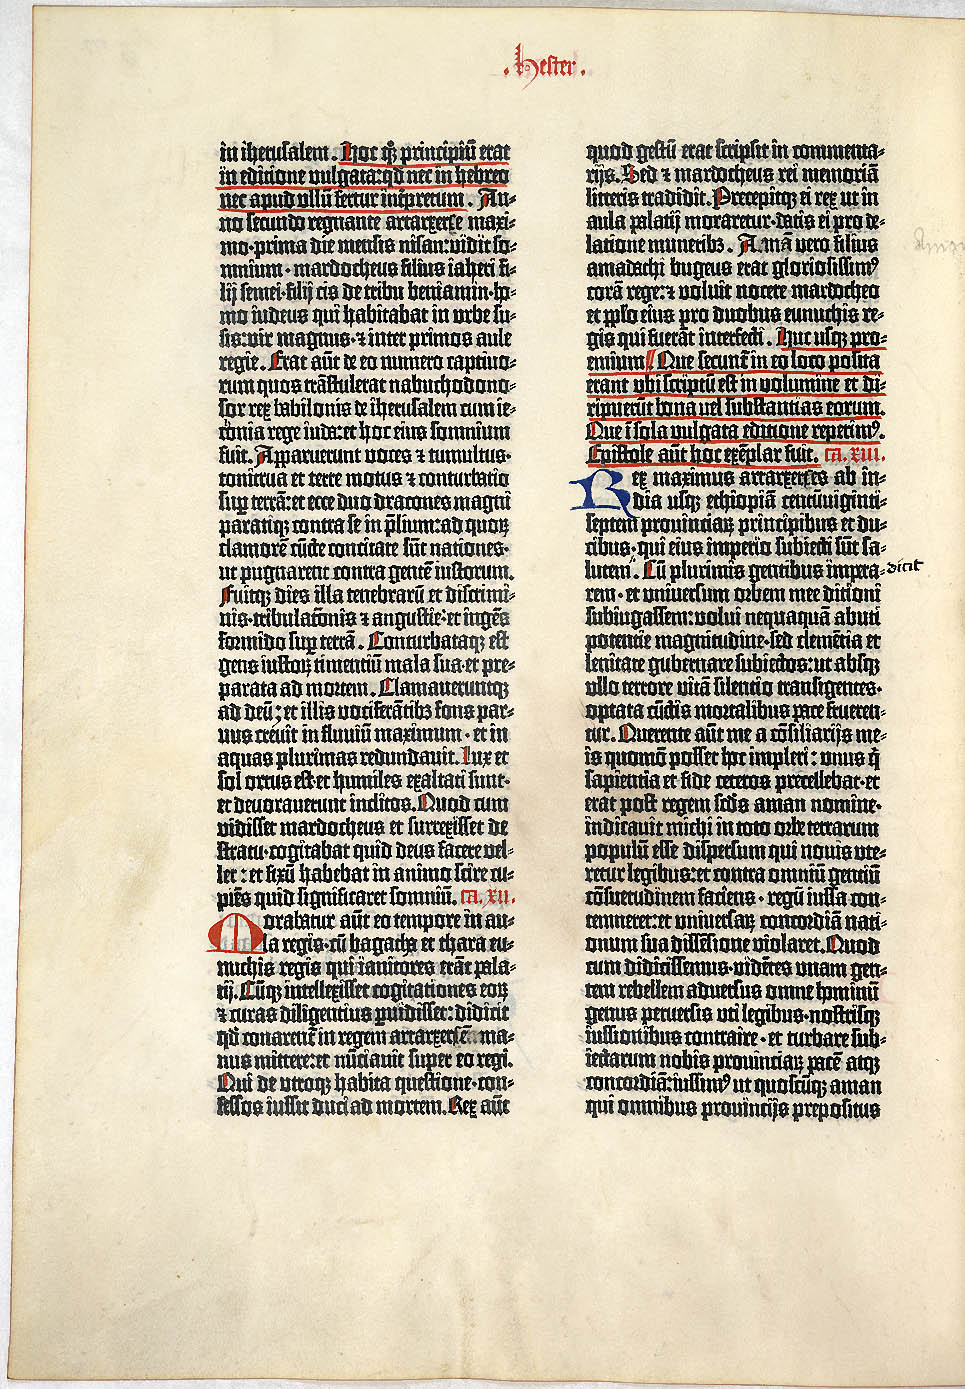 . Hester .
in iherusalem. Hoc qͦꝫ principiū erat
in editione vulgata: qd nec in hebreo
nec apud ullū fertur int̄pretum. An⸗
no secundo regnante artarxerxe maxi⸗
mo· prima die mensis nisan: vidit so⸗
mnium· mardocheus filius iaheri fi⸗
lij semei· filij cis de tribu beniamin· ho⸗
mo iudeus qui habitabat in urbe su⸗
sis: vir magnus· ⁊ inter primos aule
regie. Erat aūt de eo numero captiuo⸗
rum quos trāstulerat nabuchodono⸗
sor rex babilonis de iherusalem cum ie⸗
conia rege iuda: et hoc eius somnium
fuit. Apparuerunt voces ⁊ tumultus·
tonitrua et terre motus ⁊ conturbatio
suꝑ terrā: et ecce duo dracones magni
paratiqꝫ contra se in p̄lium: ad quoꝝ
clamorē cūcte concitate sūt nationes·
ut pugnarent contra gentē iustorum.
Fuitqꝫ dies illa tenebrarū et discrimi⸗
nis· tribulatōnis ⁊ angustie: et ingēs
formido suꝑ terrā. Conturbataqꝫ est
gens iustoꝝ timentiū mala sua· et pre⸗
parata ad mortem. Clamaueruntqꝫ
ad deū; et illis vociferātibꝫ fons par⸗
uus creuit in fluuiū maximum· et in
aquas plurimas redundauit. Lux et
sol ortus est· et humiles exaltati sunt·
et deuorauerunt inclitos. Quod cum
vidisset mardocheus et surrexisset de
stratu· cogitabat quid deus facere vel⸗
let: et fixū habebat in animo scire cu⸗
piēs quid significaret somniū. ca. xii.
Morabatur aūt eo tempore in au⸗
la regis· cū bagacha et thara eu⸗
nuchis regis qui ianitores erāt pala⸗
tij. Cūqꝫ intellexisset cogitationes eoꝝ
⁊ curas diligentius ꝑuidisset: didicit
qd conarent̄ in regem artarxersē ma⸗
nus mittere: et nūciauit super eo regi.
Qui de vtroqꝫ habita questione· con⸗
fessos iussit duci ad mortem. Rex aūt
quod gestū erat scripsit in commenta⸗
rijs. Sed ⁊ mardocheus rei memoriā
litteris tradidit. Precepitqꝫ ei rex ut in
aula palatij moraretur· datis ei pro de⸗
latione muneribꝫ. Amā vero filius
amadachi bugeus erat gloriosissimꝰ
corā rege: ⁊ voluit nocere mardocheo
et pplo eius pro duobus eunuchis re⸗
gis qui fuerāt interfecti. Huc usqꝫ pro⸗
emium Que secunt̄ in eo loco posita
erant vbi scriptū est in volumine et di⸗
ripuerūt bona vel substantias eorum.
Que ī sola vulgata editione reperimꝰ.
Epistole aūt hoc exēplar fuit. ca. xiii.
Rex maximus artarxerses ab in⸗
dia usqꝫ ethiopiā centūuiginti⸗
septem prouinciaꝝ principibus et du⸗
cibus· qui eius imperio subiecti sūt sa⸗
lutem. Cū plurimis gentibus impera⸗ dicit
rem· et vniuersum orbem mee ditioni
subiugassem: volui nequaquā abuti
potentie magnitudine· sed clemētia et
lenitate gubernare subiectos: ut absqꝫ
vllo terrore vitā silentio transigentes·
optata cūctis mortalibus pace frueren⸗
tur. Querente aūt me a cōsiliarijs me⸗
is quomō posset hoc impleri: vnus q̄
sapientia et fide ceteros precellebat· et
erat post regem scds aman nomine·
indicauit michi in toto orbe terrarum
populū esse dispersum qui nouis vte⸗
retur legibus: et contra omniū gentiū
cōsuetudinem faciens· regū iussa con⸗
temneret: et vniuersaꝝ concordiā nati⸗
onum sua dissēsione violaret. Quod
cum didicissemus· vidētes vnam gen⸗
tem rebellem aduersus omne hominū
genus peruersis uti legibus· nostrisqꝫ
iussionibus contraire· et turbare sub⸗
iectarum nobis prouinciaꝝ pacē atqꝫ
concordiā: iussimꝰ ut quoscūqꝫ aman
qui omnibus prouincijs prepositus